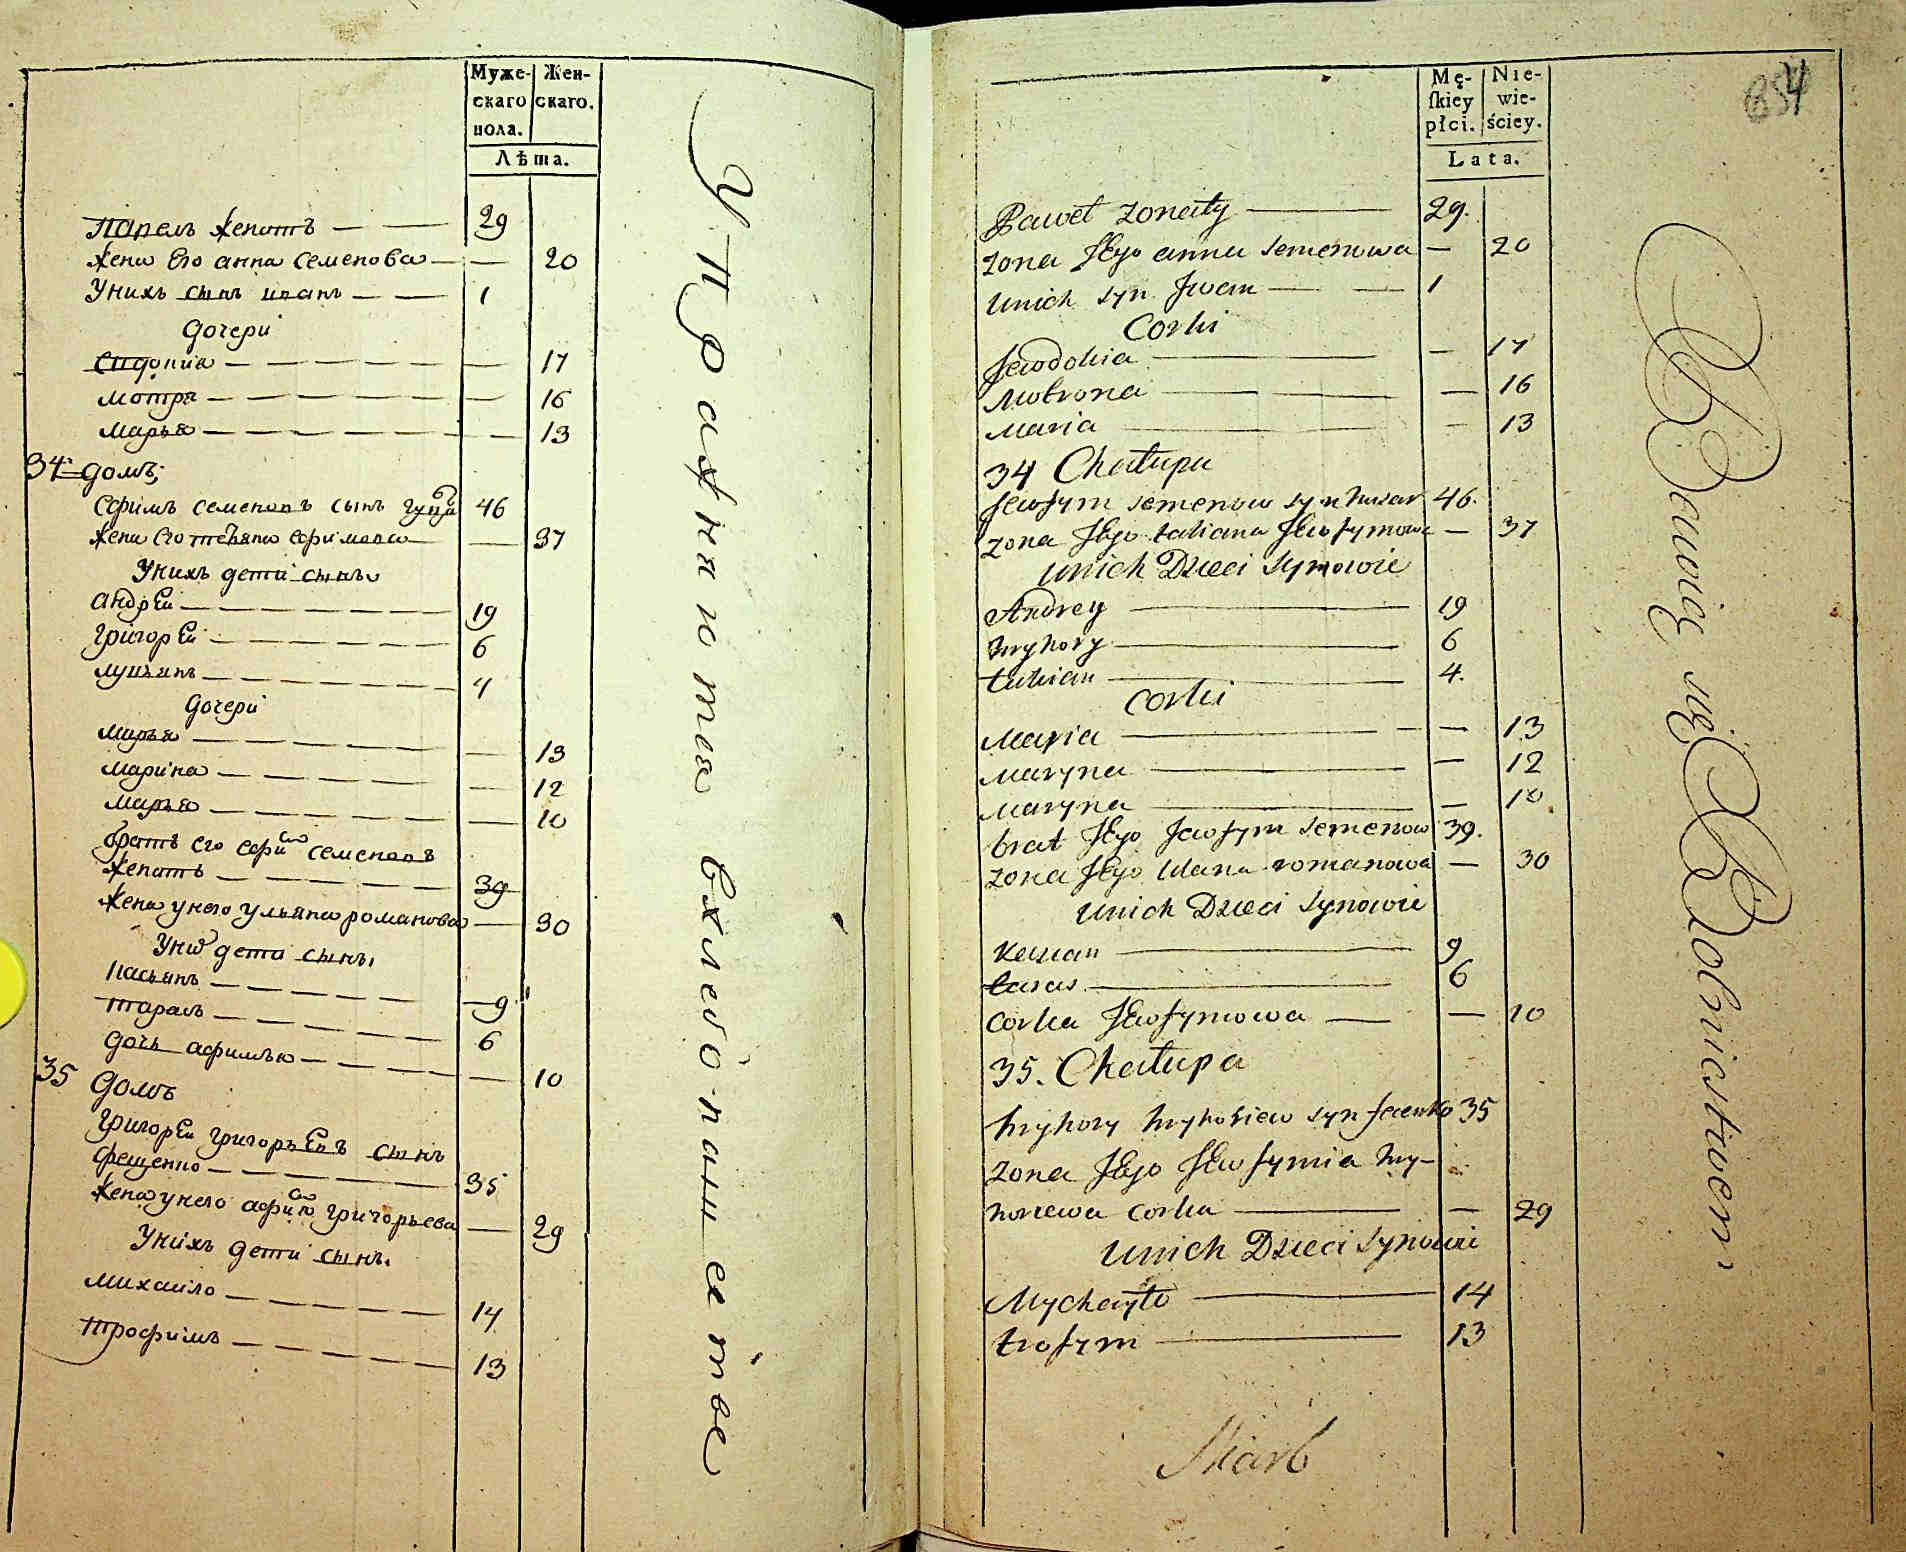 Муже-
скаго
пола.
Жен-
скаго.
Лѣта.
Павелъ женатъ 29
жена его анна семенова 20
Унихъ сынъ иванъ 1
дочери
Евдокия 17
мотря 16
марья 13
34 домъ;
Ефимъ семеновъ сынъ 46
жена его татьяна ефимова 37
Унихъ дети сынъ
андрей 19
григорей 6
лукьянъ 4
дочери
марья 13
марина 12
марья 10
братъ его ефим семеновъ
женатъ 39
жена унего ульяна романова 30
Них дети сынъ.
касьянъ 9
тарасъ 6
дочь афимья 10
35 домъ
григорей григорьевъ сынъ
фещенко 35
жена унего афимия григорьева 29
Унихъ дети сынъ.
михайло 14
трофимъ 13
Упражняются вхлебопашестве
Mę-
skiey
płci.
Nie-
wie-
ściey.
Lata.
854
Paweł zonaty 29.
zona Jego anna semenowa 20
unich syn Jwan 1
Corki
Jewdokia 17
Motrona 16
Maria 13
34 Chałupa
Jewfym semenow syn 46.
zona Jego tatiana Jewfymowa 37
unich Dzieci synowie
Andrey 19
hryhory 6
łukian 4.
corki
Maria 13
Maryna 12
Maryna 10
brat Jego Jewfym semenow 39.
zona Jego Ulana romanowa 30
unich Dzieci synowie
Kasian 9
taras 6
corka Jewfymowa 10
35. Chałupa
hryhory hryhoriew syn fecenko 35
zona Jego Jewfymia hry-
horiewa corka 29
unich Dzieci synowie
Mychayło 14
trofym 13
Bawię się Rolnictwem
Skarb